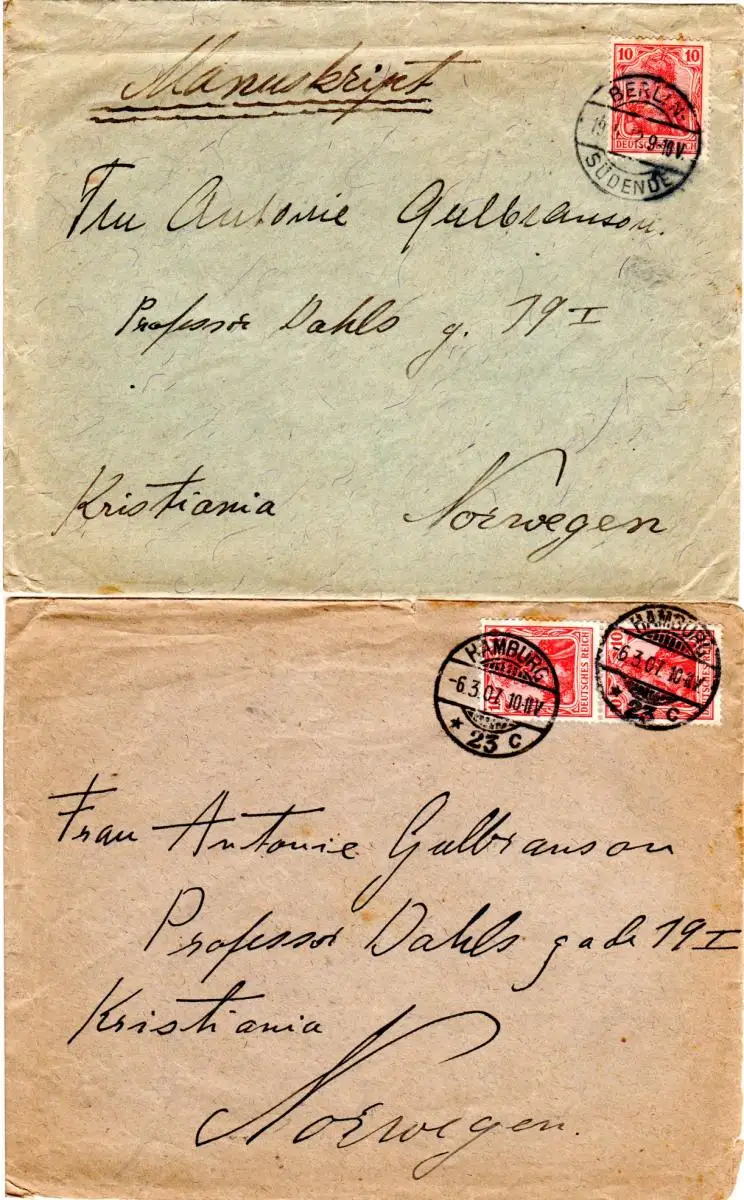 Manuskript
10 10
DEUTSCHES REICH
BERLIN-
19. 9-10V.
SÜDENDE
Frau Antonie Gulbranson.
Professor Dahls g. 19 I
Kristiania Norwegen
HAMBURG
-6.3.07. 10-11V
* 23 c
DEUTSCHES REICH
10
HAMBURG
-6.3.07. 10-11V
* 23 c
DEUTSCHES
Frau Antonie Gulbranson
Professor Dahls gade 19 I
Kristiania
Norwegen.